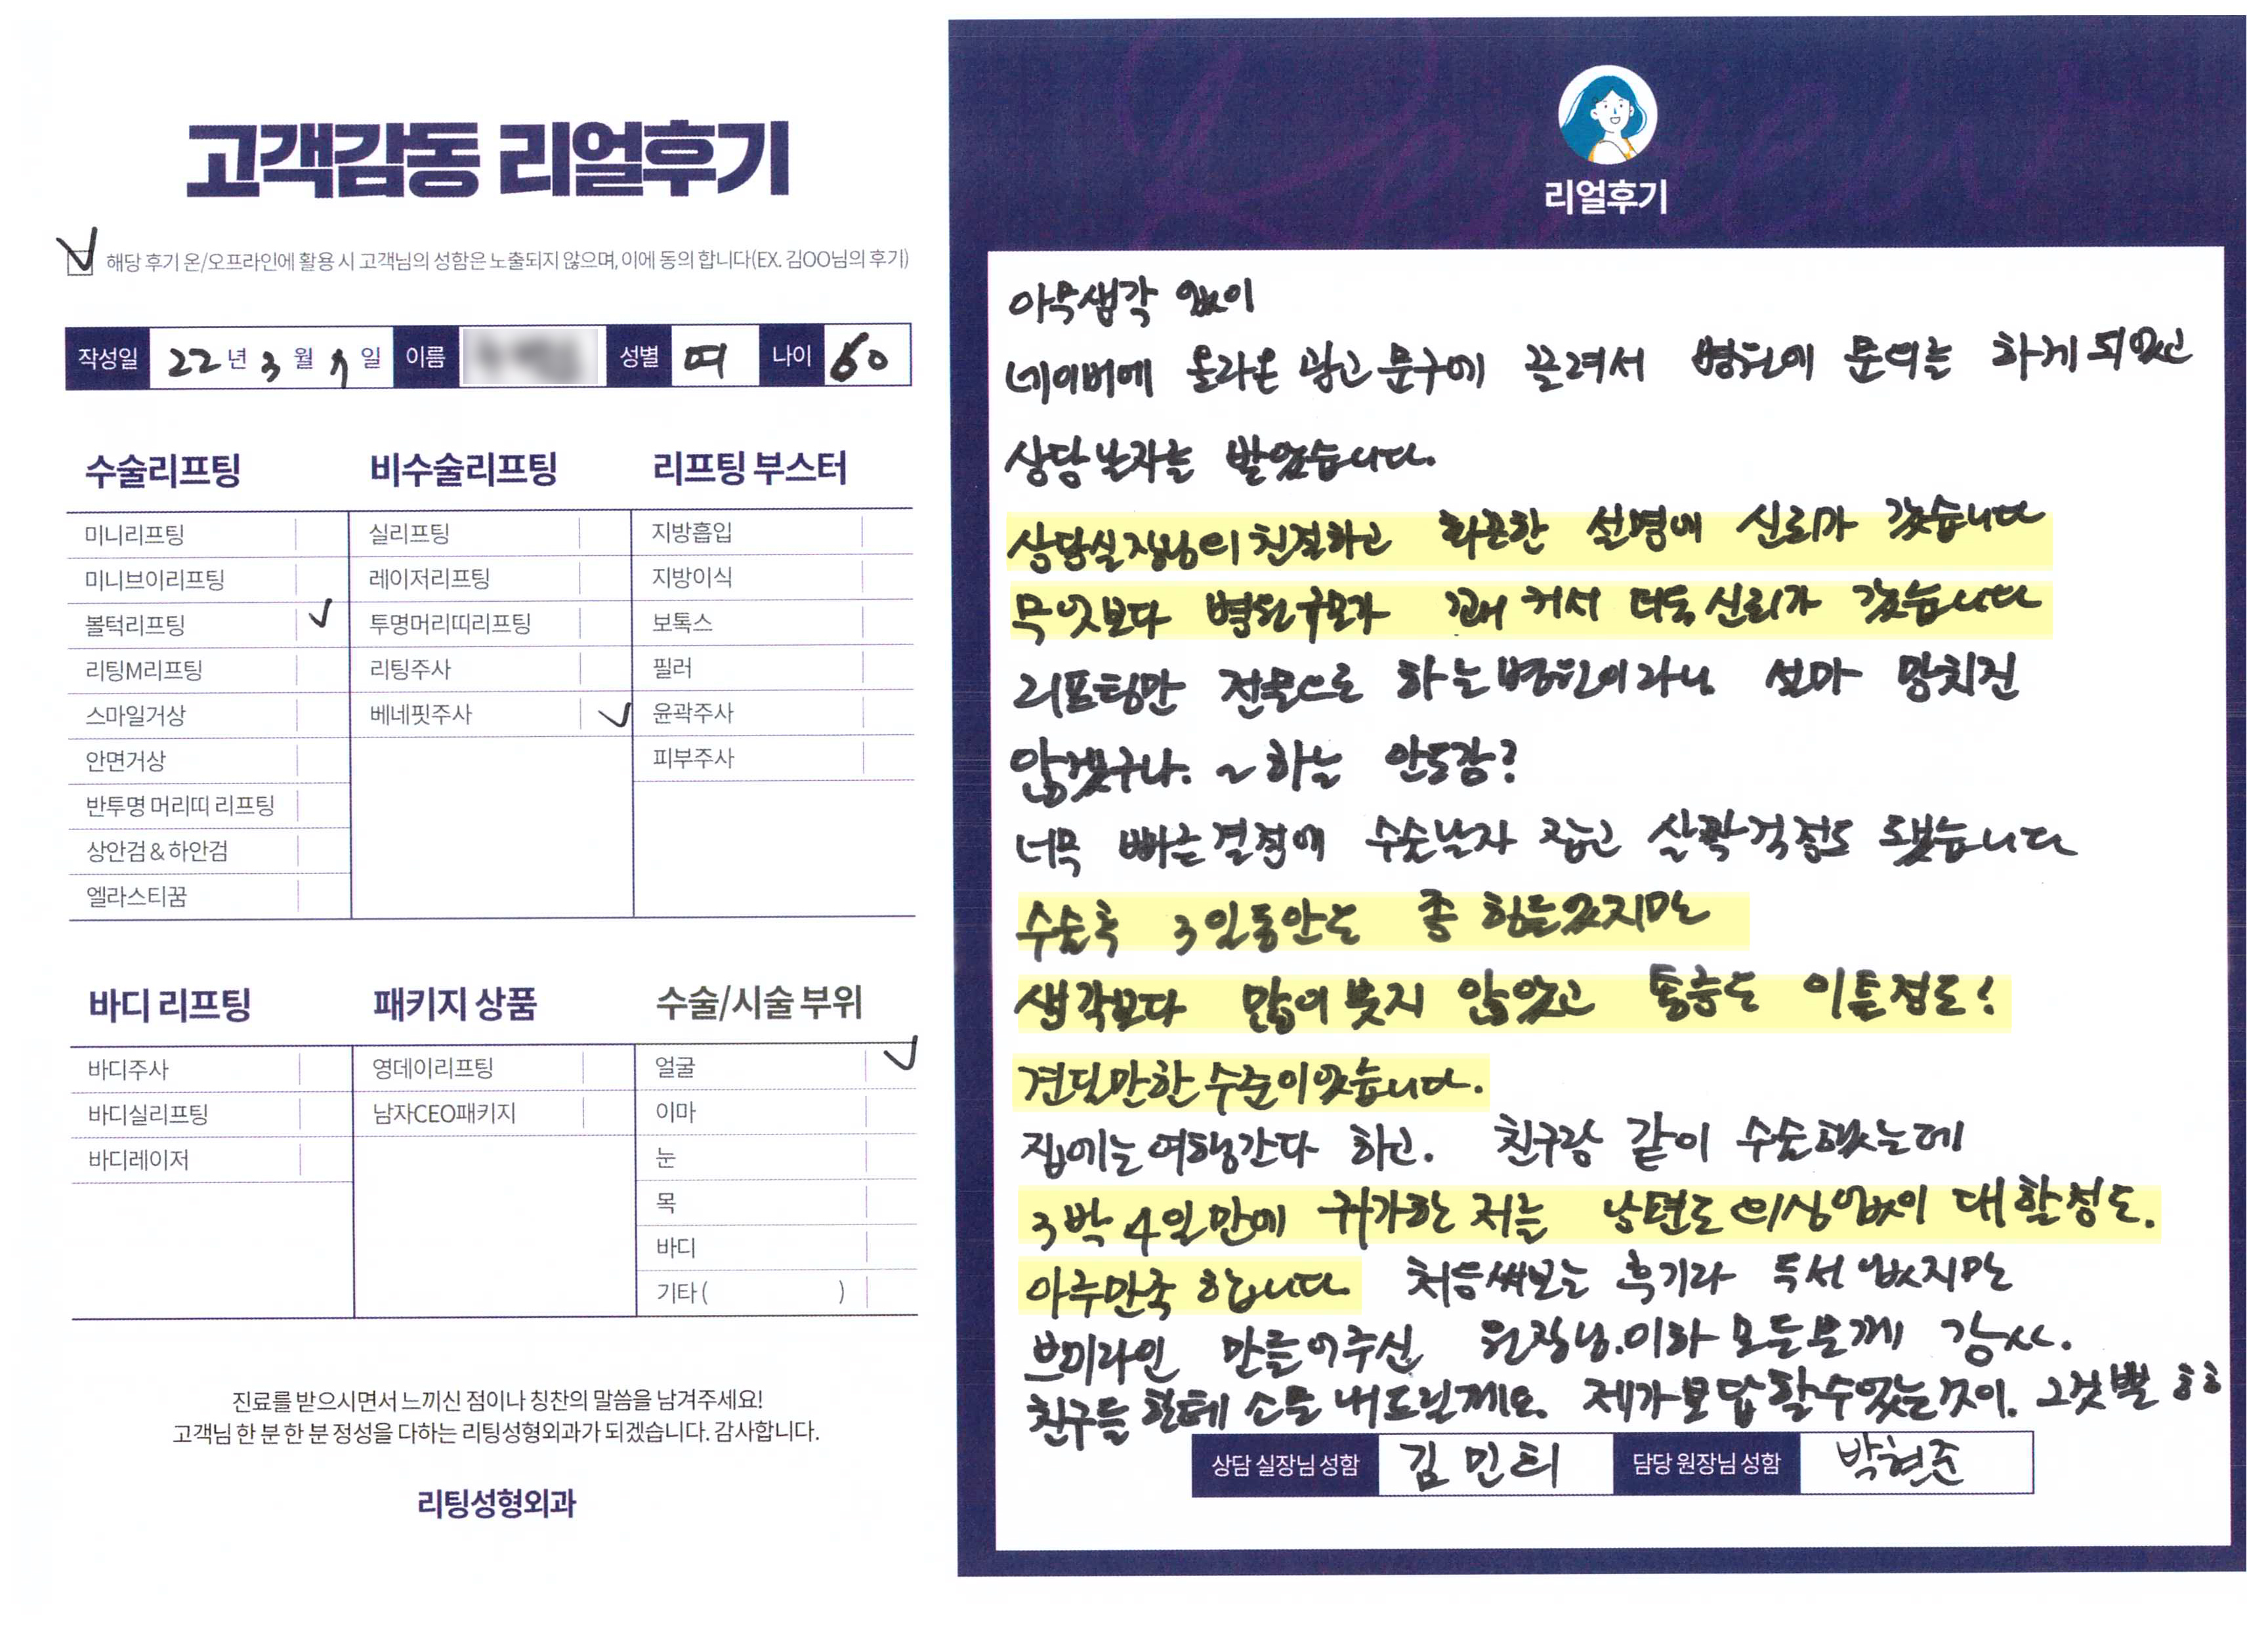 고객감동 리얼후기
해당 후기 온/오프라인에 활용 시 고객님의 성함은 노출되지 않으며, 이에 동의 합니다(EX. 김OO님의 후기)
작성일 22년 3월 일 이름 성별 여 나이 60
수술리프팅 비수술리프팅 리프팅 부스터
미니리프팅 실리프팅 지방흡입
미니브이리프팅 레이저리프팅 지방이식
볼턱리프팅 투명머리띠리프팅 보톡스
리팅M리프팅 리팅주사 필러
스마일거상 베네핏주사 윤곽주사
안면거상 피부주사
반투명 머리띠 리프팅
상안검 & 하안검
엘라스티꿈
바디 리프팅 패키지 상품 수술/시술 부위
바디주사 영데이리프팅 얼굴
바디실리프팅 남자CEO패키지 이마
바디레이저 눈
목
바디
기타 ( )
진료를 받으시면서 느끼신 점이나 칭찬의 말씀을 남겨주세요!
고객님 한 분 한 분 정성을 다하는 리팅성형외과가 되겠습니다. 감사합니다.
리팅성형외과
리얼후기
아무생각 없이
네이버에 올라온 광고 문구에 끌려서 병원에 문의는 하게 되었고
상담날자를 받었습니다.
상담실장님의 친절하고 화끈한 설명에 신뢰가 갔습니다
무엇보다 병원규모가 꽤 커서 더욱 신뢰가 갔습니다
리프팅만 전문으로 하는 병원이라니 설마 망치진
않겠구나. ~ 하는 안도감?
너무 빠른결정에 수술날자 잡고 살짝걱정도 됐습니다
수술후 3일동안은 좀 힘들었지만
생각보다 많이 붓지 않았고 통증도 이틀정도!
견딜만한 수준이었습니다.
집에는 여행간다 하고. 친구랑 같이 수술했는데
3박 4일만에 귀가한 저는 남편도 의심없이 대할정도.
아주만족 합니다 처음써보는 후기라 두서 없지만
브이라인 만들어주신 원장님.이하 모든분께 감사.
친구들 한테 소문 내드릴께요. 제가 보답 할수있는것이. 그것뿐 ㅎㅎ
상담 실장님 성함 김민희 담당 원장님 성함 박현준